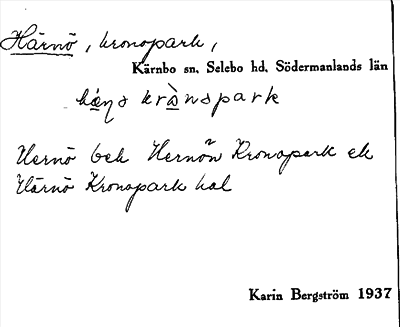 Härnö, kronopark,
Kärnbo sn, Selebo hd, Södermanlands län
krànspark
Hernö bek Hernön Kronopark ek
Härnö Kronopark hal
Karin Bergström 1937